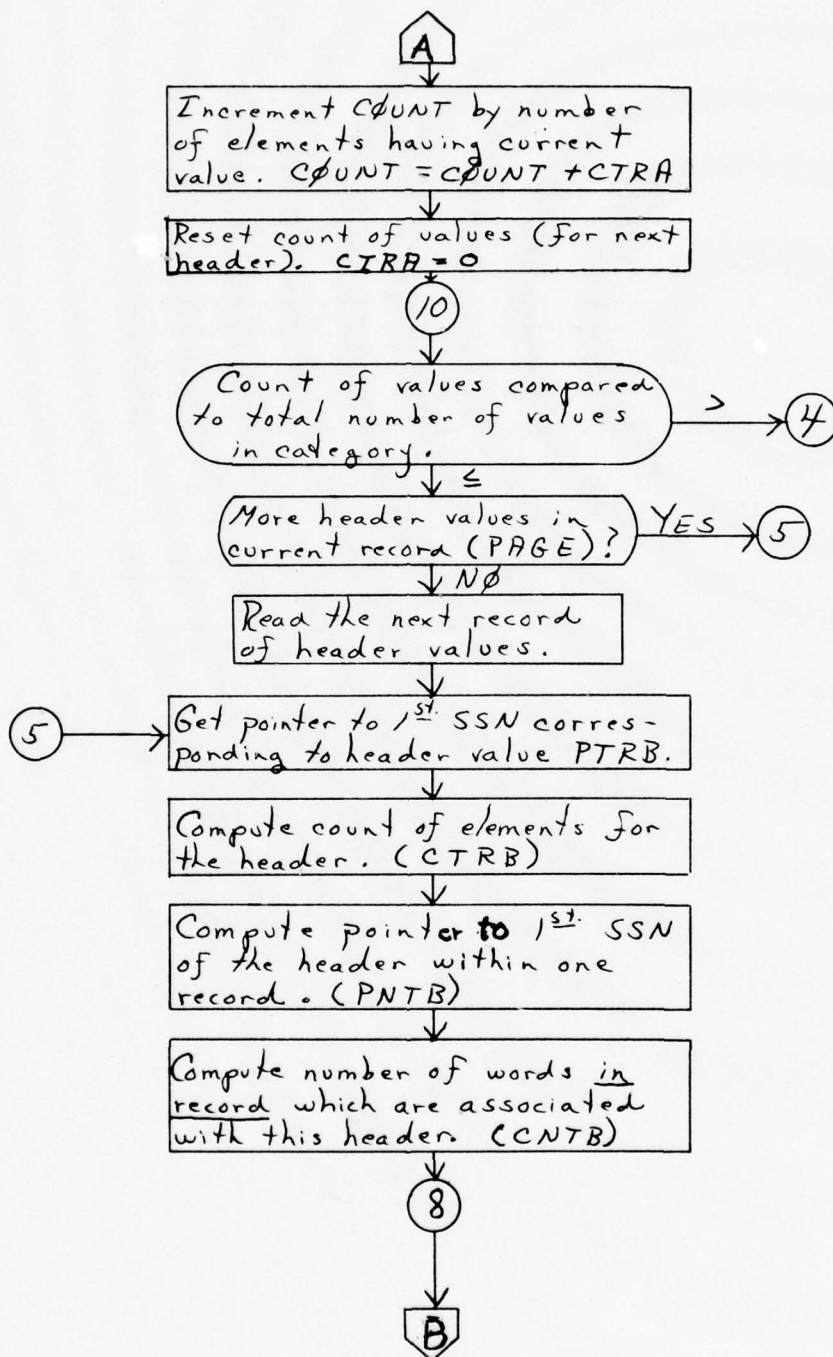 A
Increment CØUNT by number
of elements having current
value. CØUNT = CØUNT + CTRA
Reset count of values (for next
header). CTRA = 0
10
Count of values compared
to total number of values
in category.
>
4
≤
More header values in
current record (PAGE)?
YES
5
NØ
Read the next record
of header values.
5
Get pointer to 1st. SSN corres-
ponding to header value PTRB.
Compute count of elements for
the header. (CTRB)
Compute pointer to 1st. SSN
of the header within one
record. (PNTB)
Compute number of words in
record which are associated
with this header. (CNTB)
8
B